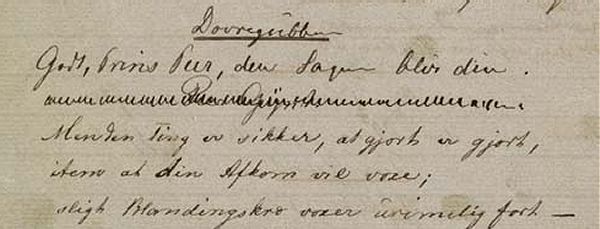 Dovregubben
Godt, Prins Peer, den Sagen blir din.
Men den Ting er sikker, at gjort er gjort,
item at din Afkom vil voxe;
sligt Blandingskre voxer urimelig fort —